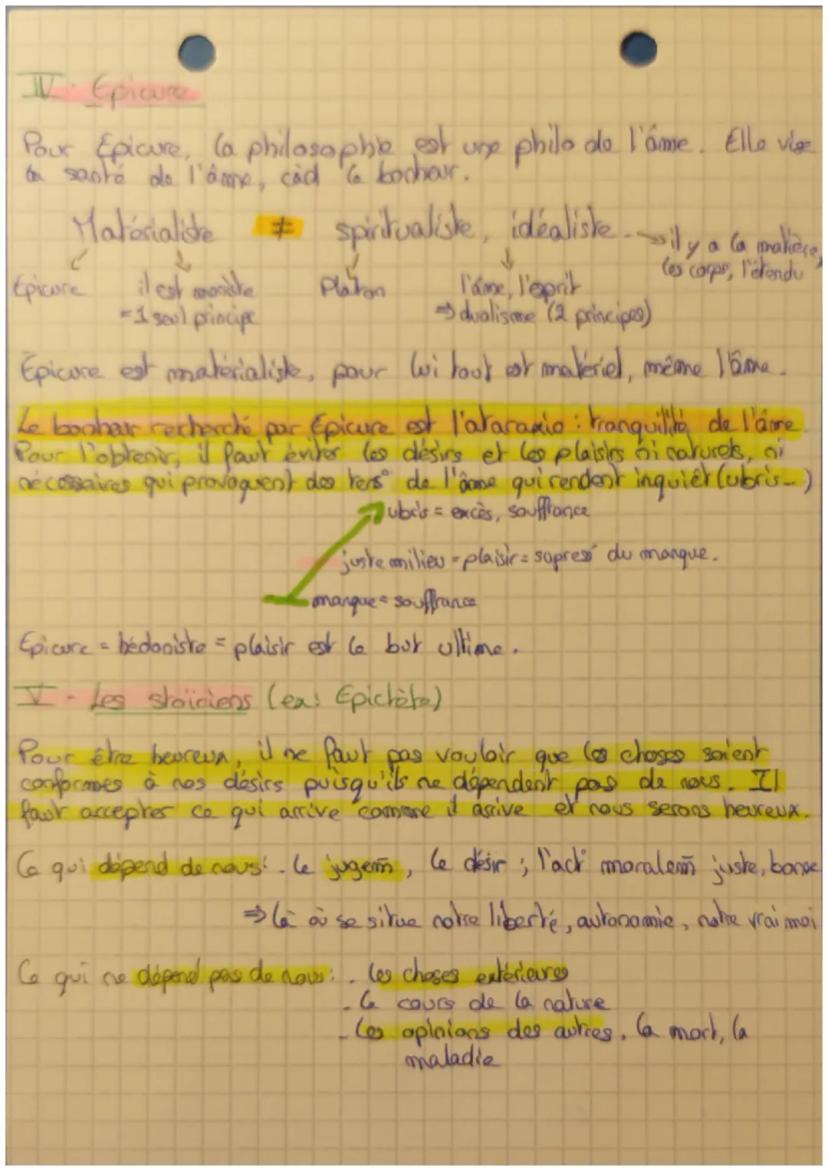 IV - Epicure
Pour Epicure, la philosophie est une philo de l'âme. Elle vise
la santé de l'âme, càd le bonheur.
Matérialiste ≠ spiritualiste, idéaliste → il y a la matière,
les corps, l'étendu
Epicure il est moniste Platon l'âme, l'esprit
=1 seul principe ⇒ dualisme (2 principes)
Epicure est matérialiste, pour lui tout est matériel, même l'âme.
Le bonheur recherché par Epicure est l'ataraxie : tranquilité de l'âme.
Pour l'obtenir, il faut éviter les désirs et les plaisirs ni naturels, ni
nécessaires qui provoquent des tens° de l'âme qui rendent inquiet (ubris...)
ubris = excès, souffrance
juste milieu = plaisir = supress° du manque.
manque = souffrance
Epicure = hédoniste = plaisir est le but ultime.
V - Les stoïciens (ex: Epictète)
Pour être heureux, il ne faut pas vouloir que les choses soient
conformes à nos désirs puisqu'ils ne dépendent pas de nous. Il
faut accepter ce qui arrive comme il arrive et nous serons heureux.
Ce qui dépend de nous: . le jugem̃, le désir ; l'act° moralem̃ juste, bonne
⇒ là où se situe notre liberté, autonomie, notre vrai moi
Ce qui ne dépend pas de nous: . les choses extérieures
- le cours de la nature
- les opinions des autres, la mort, la
maladie